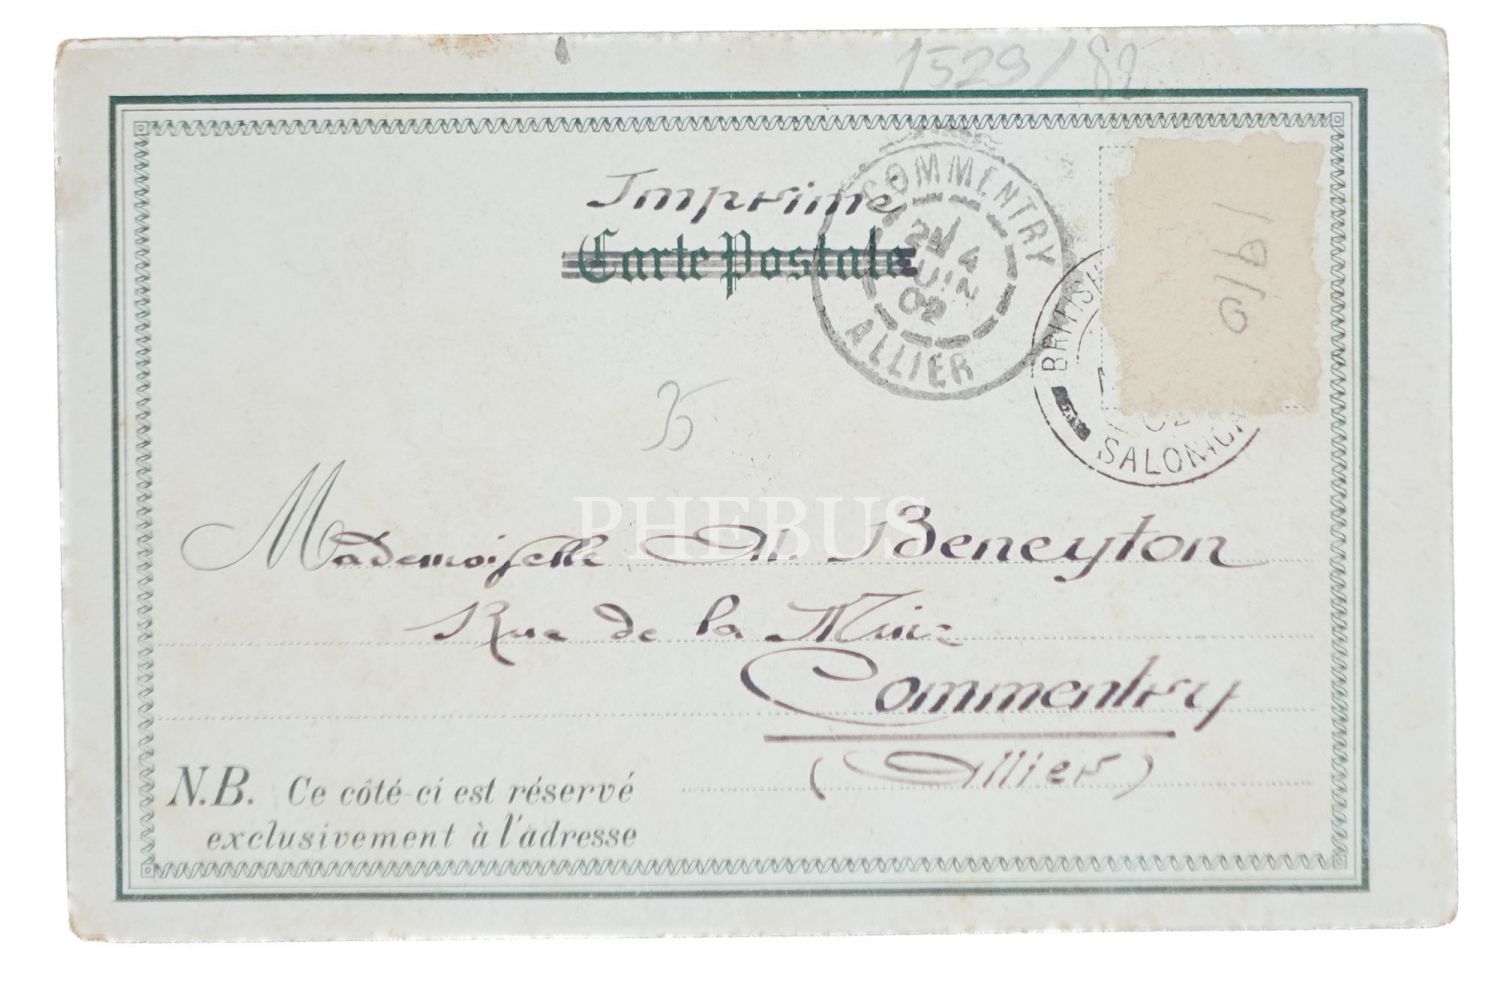 1529/82
Imprimé
Carte Postale
COMMENTRY
4
JUIN
02
ALLIER
BRITISH
02
SALONICA
1910
25
PHEBUS
Mademoiselle M. Beneyton
Rue de la Mine
Commentry
(Allier)
N.B. Ce côté-ci est réservé
exclusivement à l'adresse